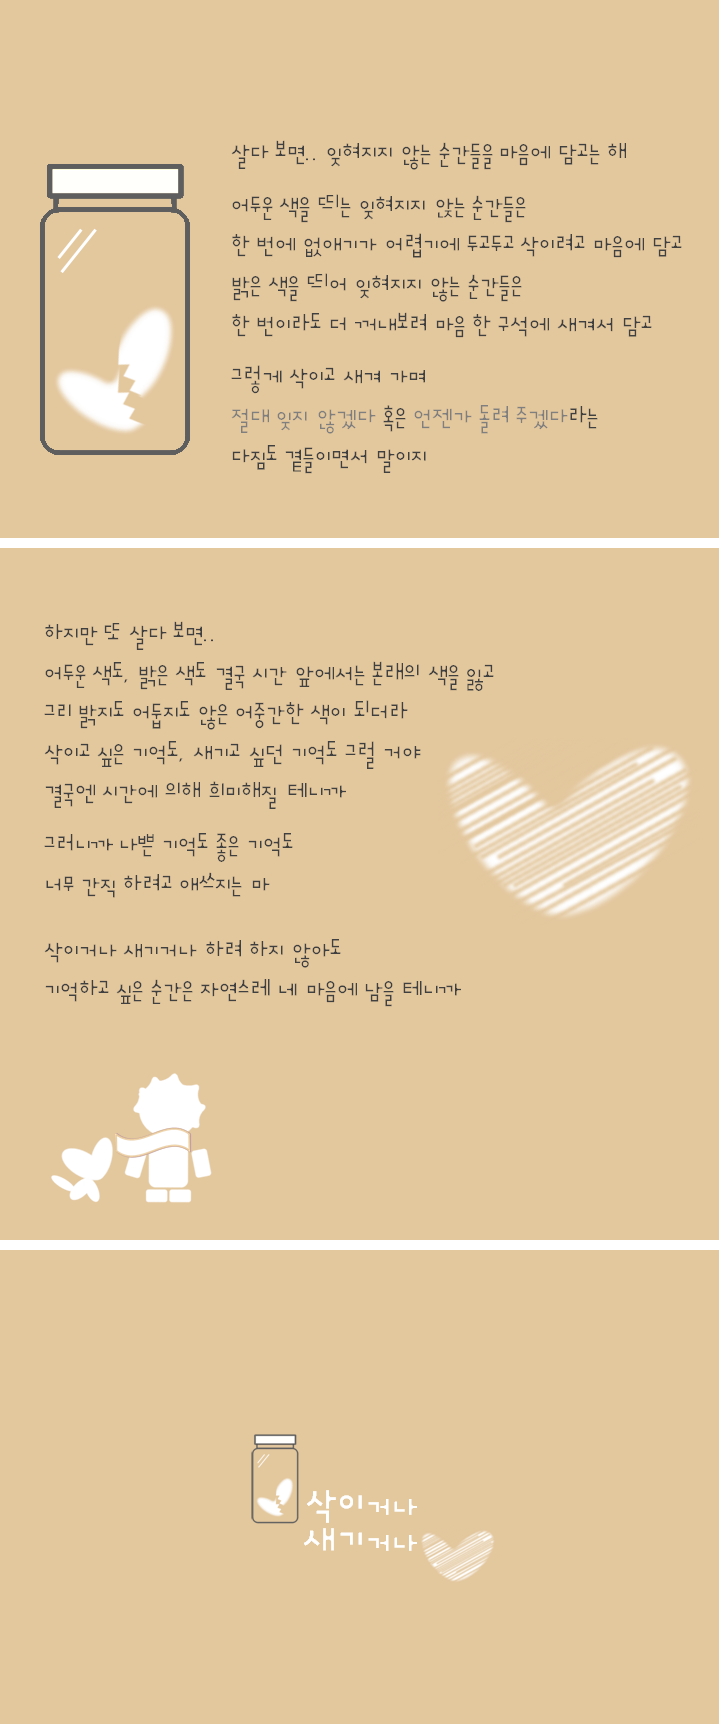 살다 보면.. 잊혀지지 않는 순간들을 마음에 담고는 해
어두운 색을 띄는 잊혀지지 않는 순간들은
한 번에 없애기가 어렵기에 두고두고 삭이려고 마음에 담고
밝은 색을 띄어 잊혀지지 않는 순간들은
한 번이라도 더 꺼내보려 마음 한 구석에 새겨서 담고
그렇게 삭이고 새겨 가며
절대 잊지 않겠다 혹은 언젠가 돌려 주겠다라는
다짐도 곁들이면서 말이지
하지만 또 살다 보면..
어두운 색도, 밝은 색도 결국 시간 앞에서는 본래의 색을 잃고
그리 밝지도 어둡지도 않은 어중간한 색이 되더라
삭이고 싶은 기억도, 새기고 싶던 기억도 그럴 거야
결국엔 시간에 의해 희미해질 테니까
그러니까 나쁜 기억도 좋은 기억도
너무 간직 하려고 애쓰지는 마
삭이거나 새기거나 하려 하지 않아도
기억하고 싶은 순간은 자연스레 네 마음에 남을 테니까
삭이거나
새기거나